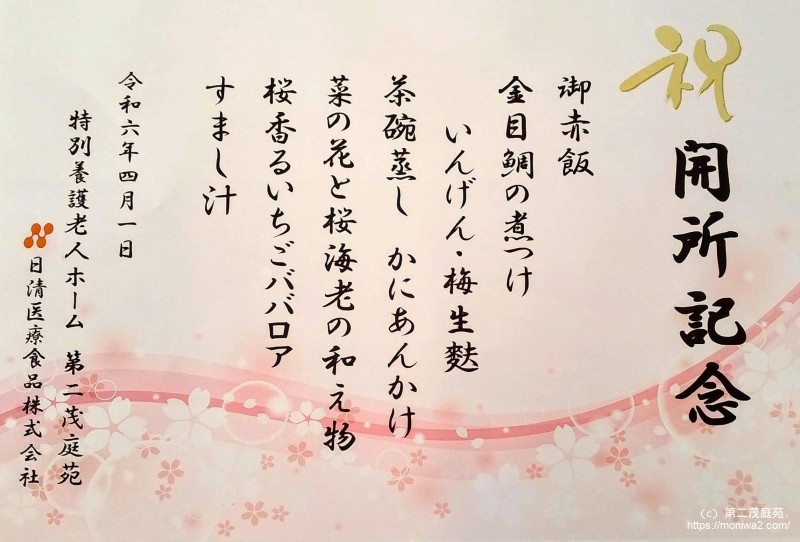 祝 開所記念
御赤飯
金目鯛の煮つけ
いんげん・梅生麩
茶碗蒸し かにあんかけ
菜の花と桜海老の和え物
桜香るいちごババロア
すまし汁
令和六年四月一日
特別養護老人ホーム 第二茂庭苑
日清医療食品株式会社
(c) 第二茂庭苑.
https://moniwa2.com/